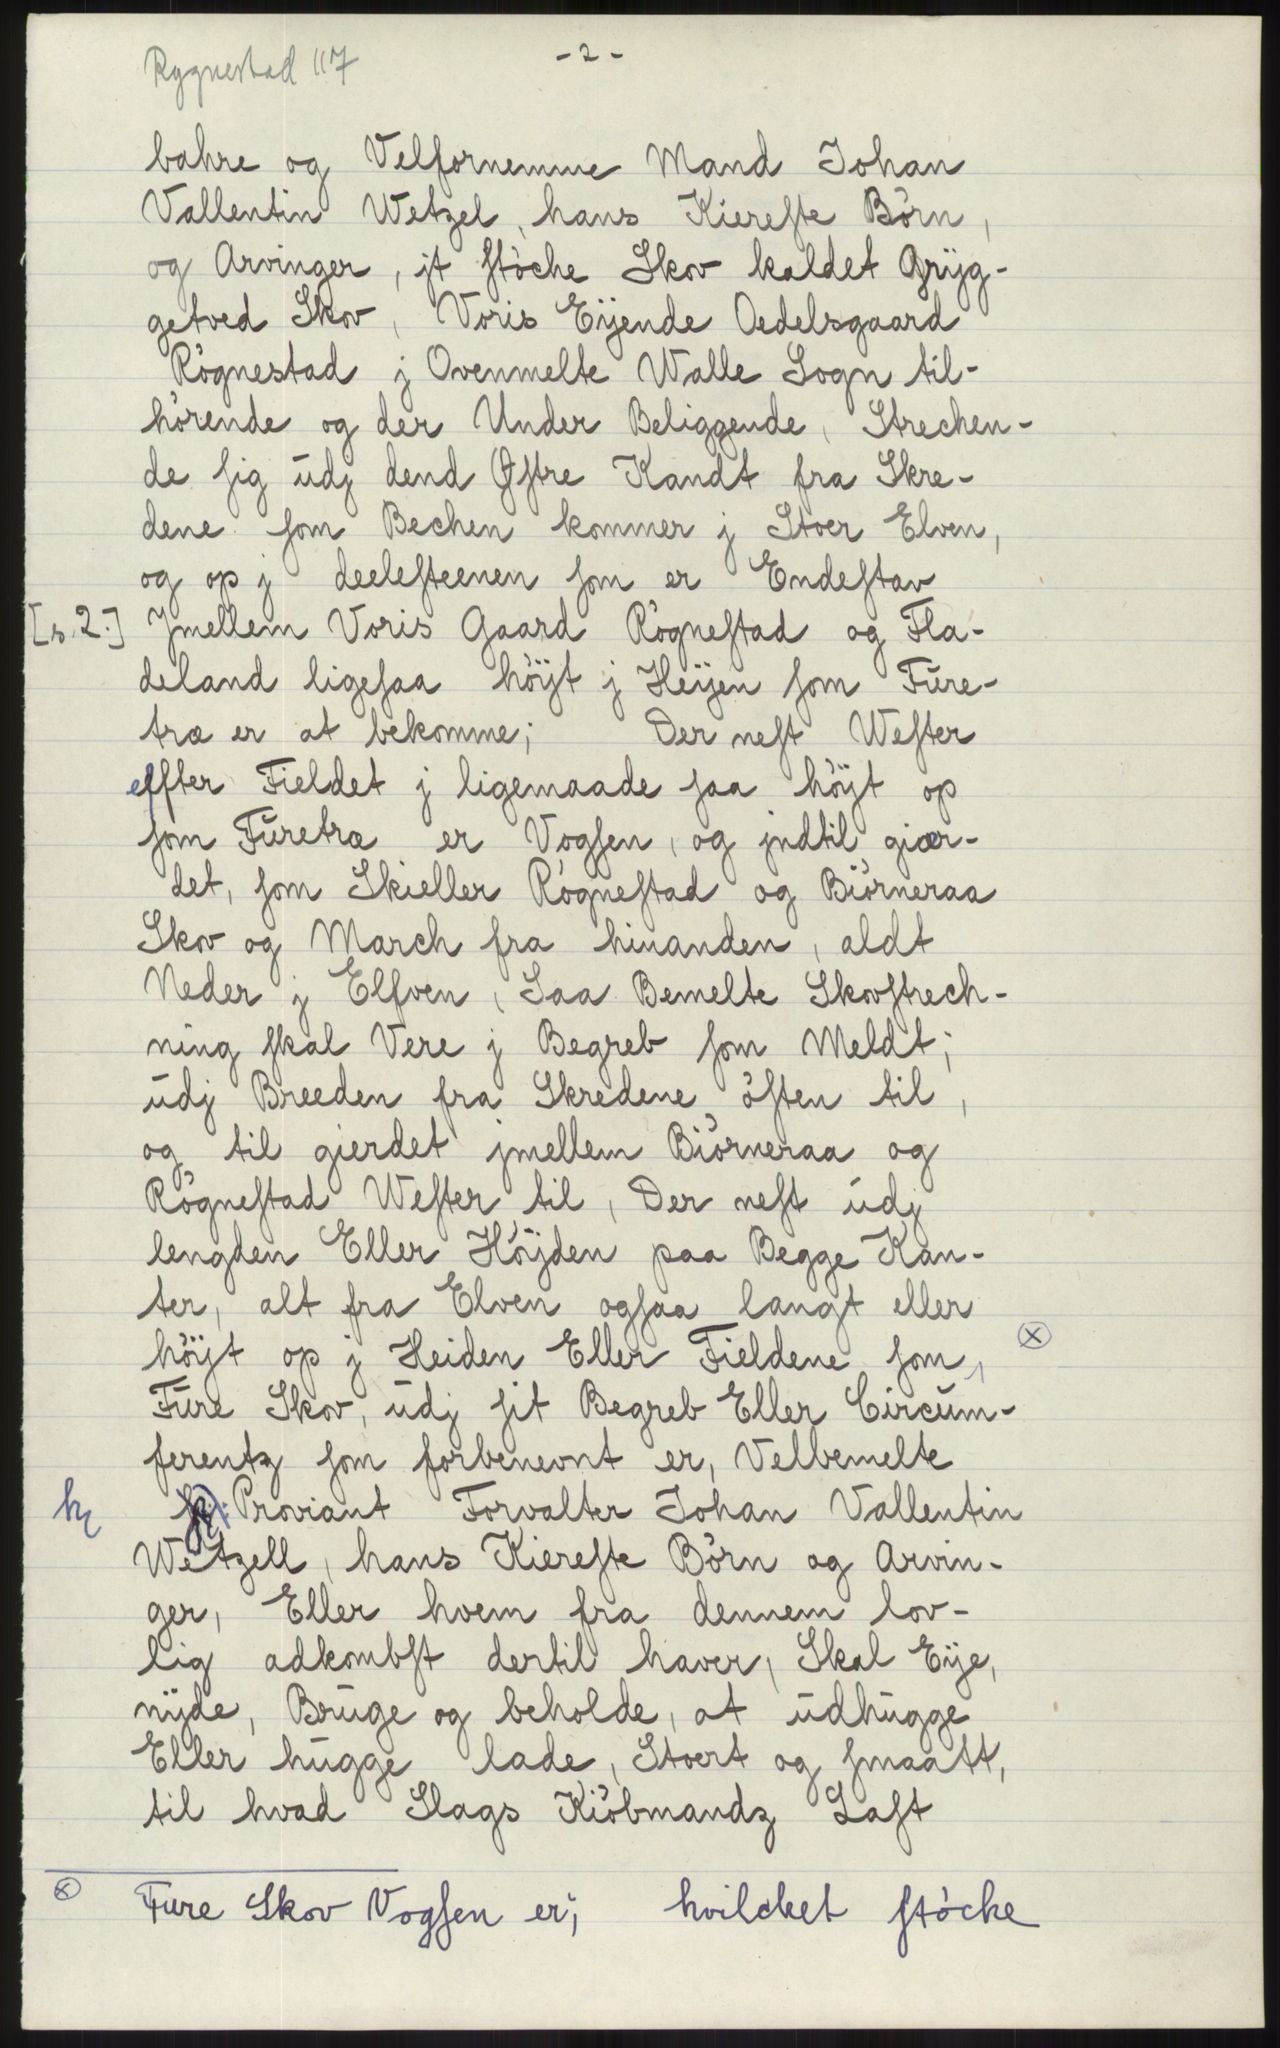 Rygnestad 117
- 2 -
bahre og Velfornemme Mand Johan
Vallentin Wetzel, hans Kiereste Börn,
og Arvinger, jt støche Skov kaldet Gryg-
getved Skov, Voris Eyende Oedelsgaard
Rögnestad j Ovenmelte Walle Sogn til-
hörende og der Under Beliggende, Strechen-
de sig udj dend Østre Kandt fra Skre-
dene som Bechen kommer j Stoer Elven,
og op j deelesteenen som er Endestav
[s. 2.] Jmellem Voris Gaard Rögnestad og Fla-
deland ligesaa höyt j Heyen som Fure-
træ er at bekomme; Der nest Wester
effter Fieldet j ligemaade saa höyt op
som Furetræ er Vogsen, og jndtil gier-
det, som Skieller Rögnestad og Biörneraa
Skov og March fra hinanden, aldt
Neder j Elfven, Saa Bemelte Skovstrech-
ning skal Vere j Begreb som Meldt;
udj Breeden fra Skredene östen til,
og til gierdet jmellem Biörneraa og
Rögnestad Wester til, Der nest udj
lengden Eller Höyden paa Begge Kan-
ter, alt fra Elven ogsaa langt eller
höyt op j Heiden Eller Fieldene som, ⓧ
Fure Skov, udj sit Begreb Eller Circum-
ferentz som forbenevnt er, Velbemelte
hr Proviant Forvalter Johan Vallentin
Wetzell, hans Kiereste Börn og Arvin-
ger, Eller hvem fra dennem lov-
lig adkombst dertil haver, Skal Eye,
nyde, Bruge og beholde, at udhugge
Eller hugge lade, Stoert og smaatt,
til hvad Slags Kiöbmandz Last
ⓧ Fure Skov Vogsen er; hvilcket støcke